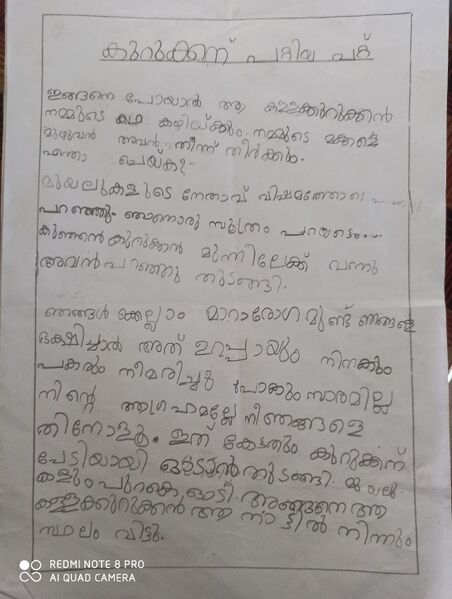 കുറുക്കന് പറ്റിയ പറ്റ്
ഇങ്ങനെ പോയാൽ ആ കള്ളക്കുറിക്കൻ
നമ്മുടെ കഥ കഴിയ്ക്കും. നമ്മുടെ മക്കളെ
മുഴുവൻ അവൻ തിന്ന് തീർക്കും.
എന്താ ചെയ്ക?
മുയലുകളുടെ നേതാവ് വിഷമത്തോടെ
പറഞ്ഞു. ഞാനൊരു സൂത്രം പറയട്ടെ....
കുഞ്ഞൻകുറുക്കൻ മുന്നിലേക്ക് വന്നു
അവൻപറഞ്ഞു തുടങ്ങി.
ഞങ്ങൾ ക്കെല്ലാം മാറാരോഗമുണ്ട് ഞങ്ങളെ
ഭക്ഷിച്ചാൽ അത് ഉറപ്പായും നിനക്കും
പകരും നീമരിച്ചു പോകും സാരമില്ല
നിന്റെ ആഗ്രഹമല്ലേ നീ ഞങ്ങളെ
തിന്നോളൂ. ഇത് കേട്ടതും കുറുക്കന്
പേടിയായി ഓടാൻതുടങ്ങി. മുയലു
കളും പുറകെ ഓടി. അങ്ങനെ ആ
കള്ളക്കുറുക്കൻ ആ നാട്ടിൽ നിന്നും
സ്ഥലം വിട്ടു.
REDMI NOTE 8 PRO
AI QUAD CAMERA